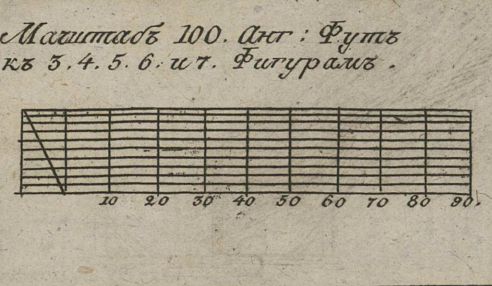 Масштабъ 100. Анг: Футъ
къ 3. 4. 5. 6. и 7. Фигурамъ.
10 20 30 40 50 60 70 80 90.